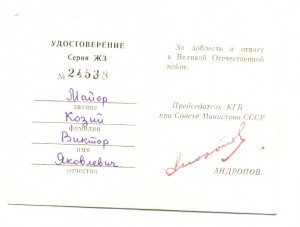 УДОСТОВЕРЕНИЕ
Серия ЖЗ
№ 24538
Майор
звание
Козий
фамилия
Виктор
имя
Яковлевич
отчество
За доблесть и отвагу
в Великой Отечественной
войне.
Председатель КГБ
при Совете Министров СССР
АНДРОПОВ.